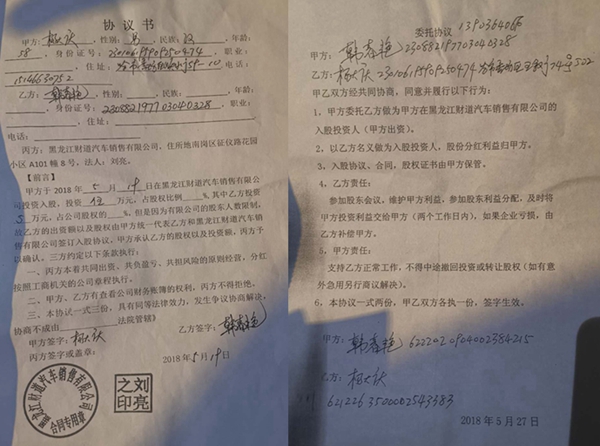 协议书
甲方：杨大庆，性别：男，民族：汉，年龄：
58，身份证号：，职业：
，住址：
15146630752
乙方：韩春艳，性别：，民族：，年龄：
，身份证号：230882197703040328，职业：
，住址：
电话：
丙方：黑龙江财道汽车销售有限公司，住所地南岗区征仪路花园
小区A101幢8号，法人：刘亮。
【前言】
甲方于2018年5月19日在黑龙江财道汽车销售有限公
司投资入股，投资万元，占股权比例%，其中乙方投资
5万元，占公司股权的%，但是因为有限公司的股东人数限制，
故乙方的出资额以及股权由甲方统一代表乙方和黑龙江财道汽车销
售有限公司签订入股协议，甲方承认乙方的股权以及投资额，丙方予
以确认。三方约定以下条款执行：
一、丙方本着共同出资、共负盈亏、共担风险的原则经营，分红
按照工商机关的公司章程执行。
二、甲方、乙方有查看公司财务账簿的权利，丙方不得拒绝。
三、本协议一式三份，具有同等法律效力，发生争议协商解决，
协商不成由法院管辖》
甲方签字：杨大庆 乙方签字：韩春艳
丙方签字或盖章： 2018年5月19日
黑龙江财道汽车销售有限公司
合同专用章
刘亮之印
委托协议
甲方：韩春艳 230882197703040328
乙方：杨大庆
甲乙双方经共同协商，同意并履行以下行为：
1、甲方委托乙方做为甲方在黑龙江财道汽车销售有限公司的
入股投资人（甲方出资）。
2、以乙方名义做为入股投资人，股份分红利益归甲方。
3、入股协议、合同，股权证书由甲方保管。
4、乙方责任：
参加股东会议，维护甲方利益，参加股东利益分配，及时将
甲方投资利益交给甲方（两个工作日内），如果企业亏损，由
乙方补偿甲方。
5、甲方责任：
支持乙方正常工作，不得中途撤回投资或转让股权（如有意
外急用另行商议解决）。
6、本协议一式两份，甲乙双方各执一份，签字生效。
甲方：韩春艳 6222020904002384215
乙方：杨大庆
6212263500002543383
2018年5月27日